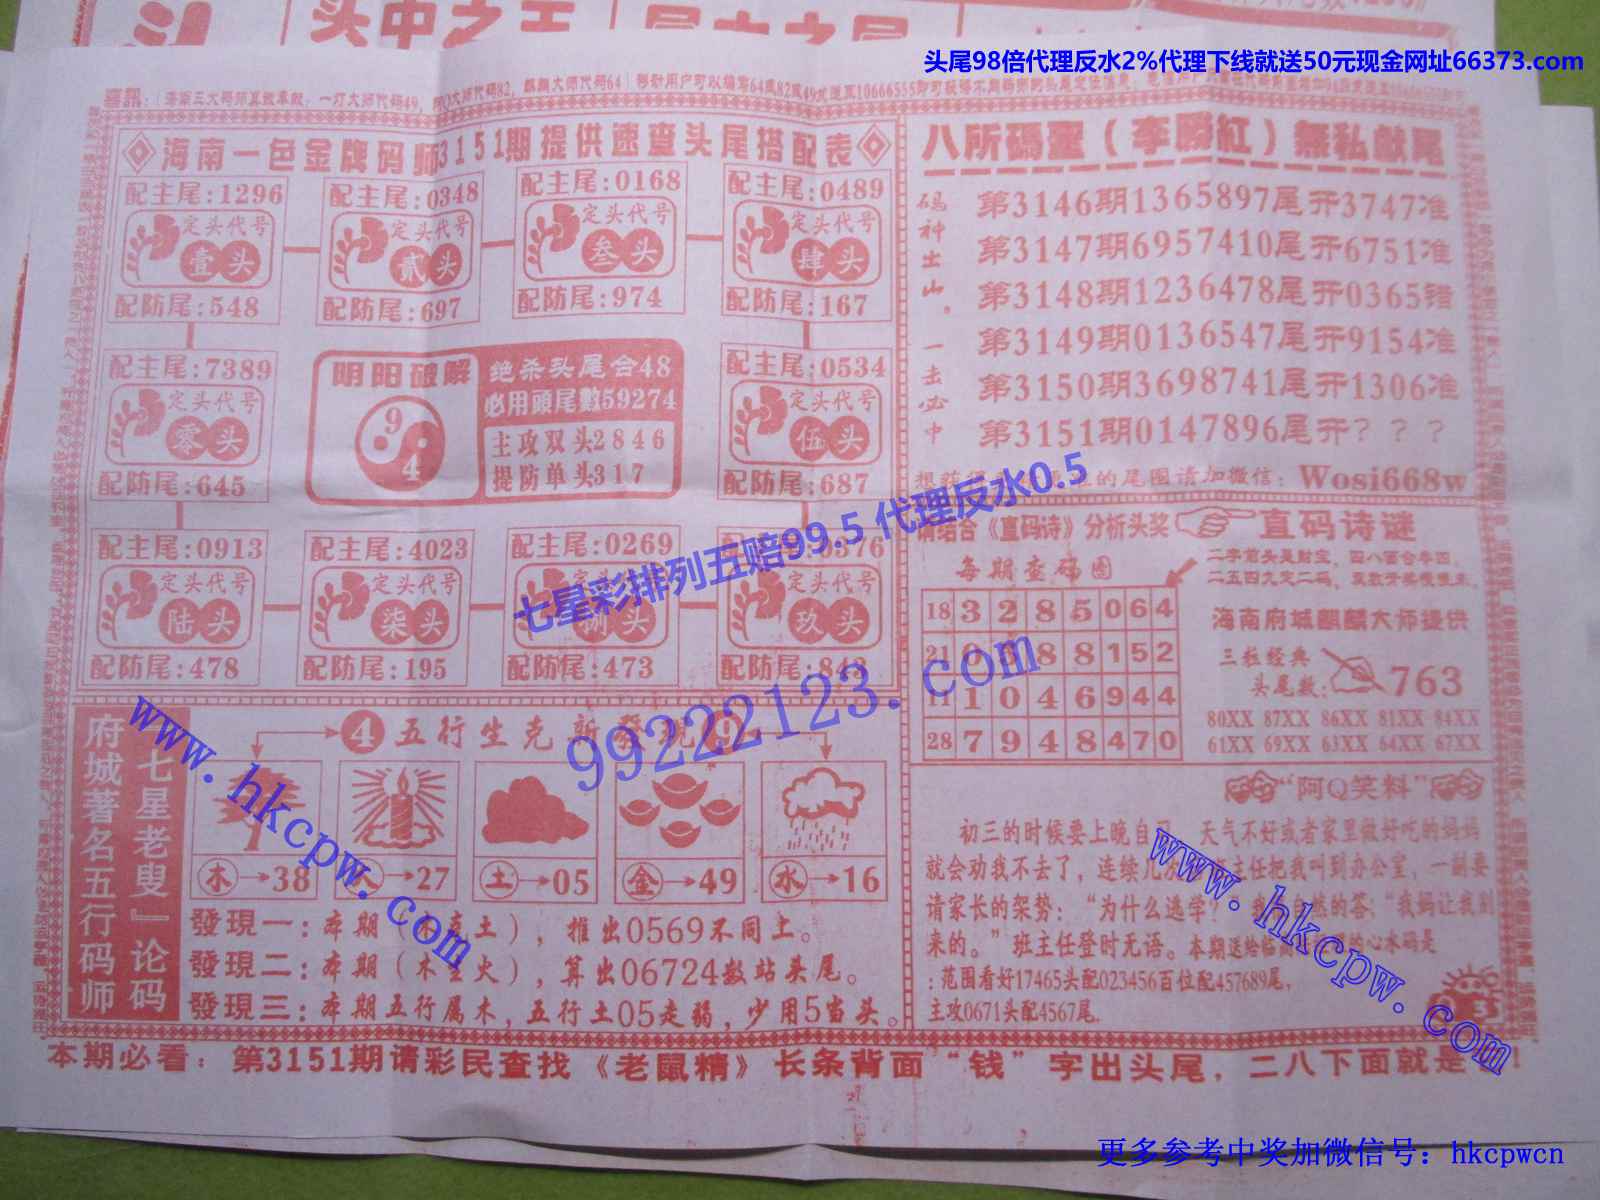 头尾98倍代理反水2%代理下线就送50元现金网址66373.com
海南一色金牌码师3151期提供速查头尾搭配表
配主尾:1296
定头代号
壹头
配防尾:548
配主尾:0348
定头代号
贰头
配防尾:697
配主尾:0168
定头代号
叁头
配防尾:974
配主尾:0489
定头代号
肆头
配防尾:167
配主尾:7389
定头代号
零头
配防尾:645
阴阳破解
9
4
绝杀头尾合48
必用頭尾數59274
主攻双头2846
提防单头317
配主尾:0534
定头代号
伍头
配防尾:687
配主尾:0913
定头代号
陆头
配防尾:478
配主尾:4023
定头代号
柒头
配防尾:195
配主尾:0269
定头代号
捌头
配防尾:473
定头代号
玖头
七星彩排列五赔99.5 代理反水0.5
99222123.com
八所碼聖(李勝紅)無私獻尾
码神出山。一击必中
第3146期1365897尾开3747准
第3147期6957410尾开6751准
第3148期1236478尾开0365错
第3149期0136547尾开9154准
第3150期3698741尾开1306准
第3151期0147896尾开? ? ?
的尾图请加微信: Wosi668w
请结合《直码诗》分析头奖
直码诗谜
每期查码图
18 3 2 8 5 0 6 4
21 0 6 8 8 1 5 2
11 1 0 4 6 9 4 4
28 7 9 4 8 4 7 0
海南府城麒麟大师提供
三粒经典
头尾数: 763
80XX 87XX 86XX 81XX 84XX
61XX 69XX 63XX 64XX 67XX
七星老叟』论码
府城著名五行码师
4 五行生克新發現 9
木→38
火→27
土→05
金→49
水→16
發現一: 本期(木克土), 推出0569不同上。
發現二: 本期(木生火), 算出06724数站头尾。
發現三: 本期五行属木, 五行土05走弱, 少用5当头。
www.hkcpw.com
“阿Q笑料”
初三的时候要上晚自习 天气不好或者家里做好吃的妈妈
就会劝我不去了, 连续几次 主任把我叫到办公室, 一副要
请家长的架势: “为什么逃学? 我 自然的答: “我妈让我别
来的。” 班主任登时无语。本期送给 的心水码是
:范围看好17465头配023456百位配457689尾,
主攻0671头配4567尾.
www.hkcpw.com
本期必看: 第3151期请彩民查找《老鼠精》长条背面“钱”字出头尾, 二八下面就是
更多参考中奖加微信号: hkcpwcn